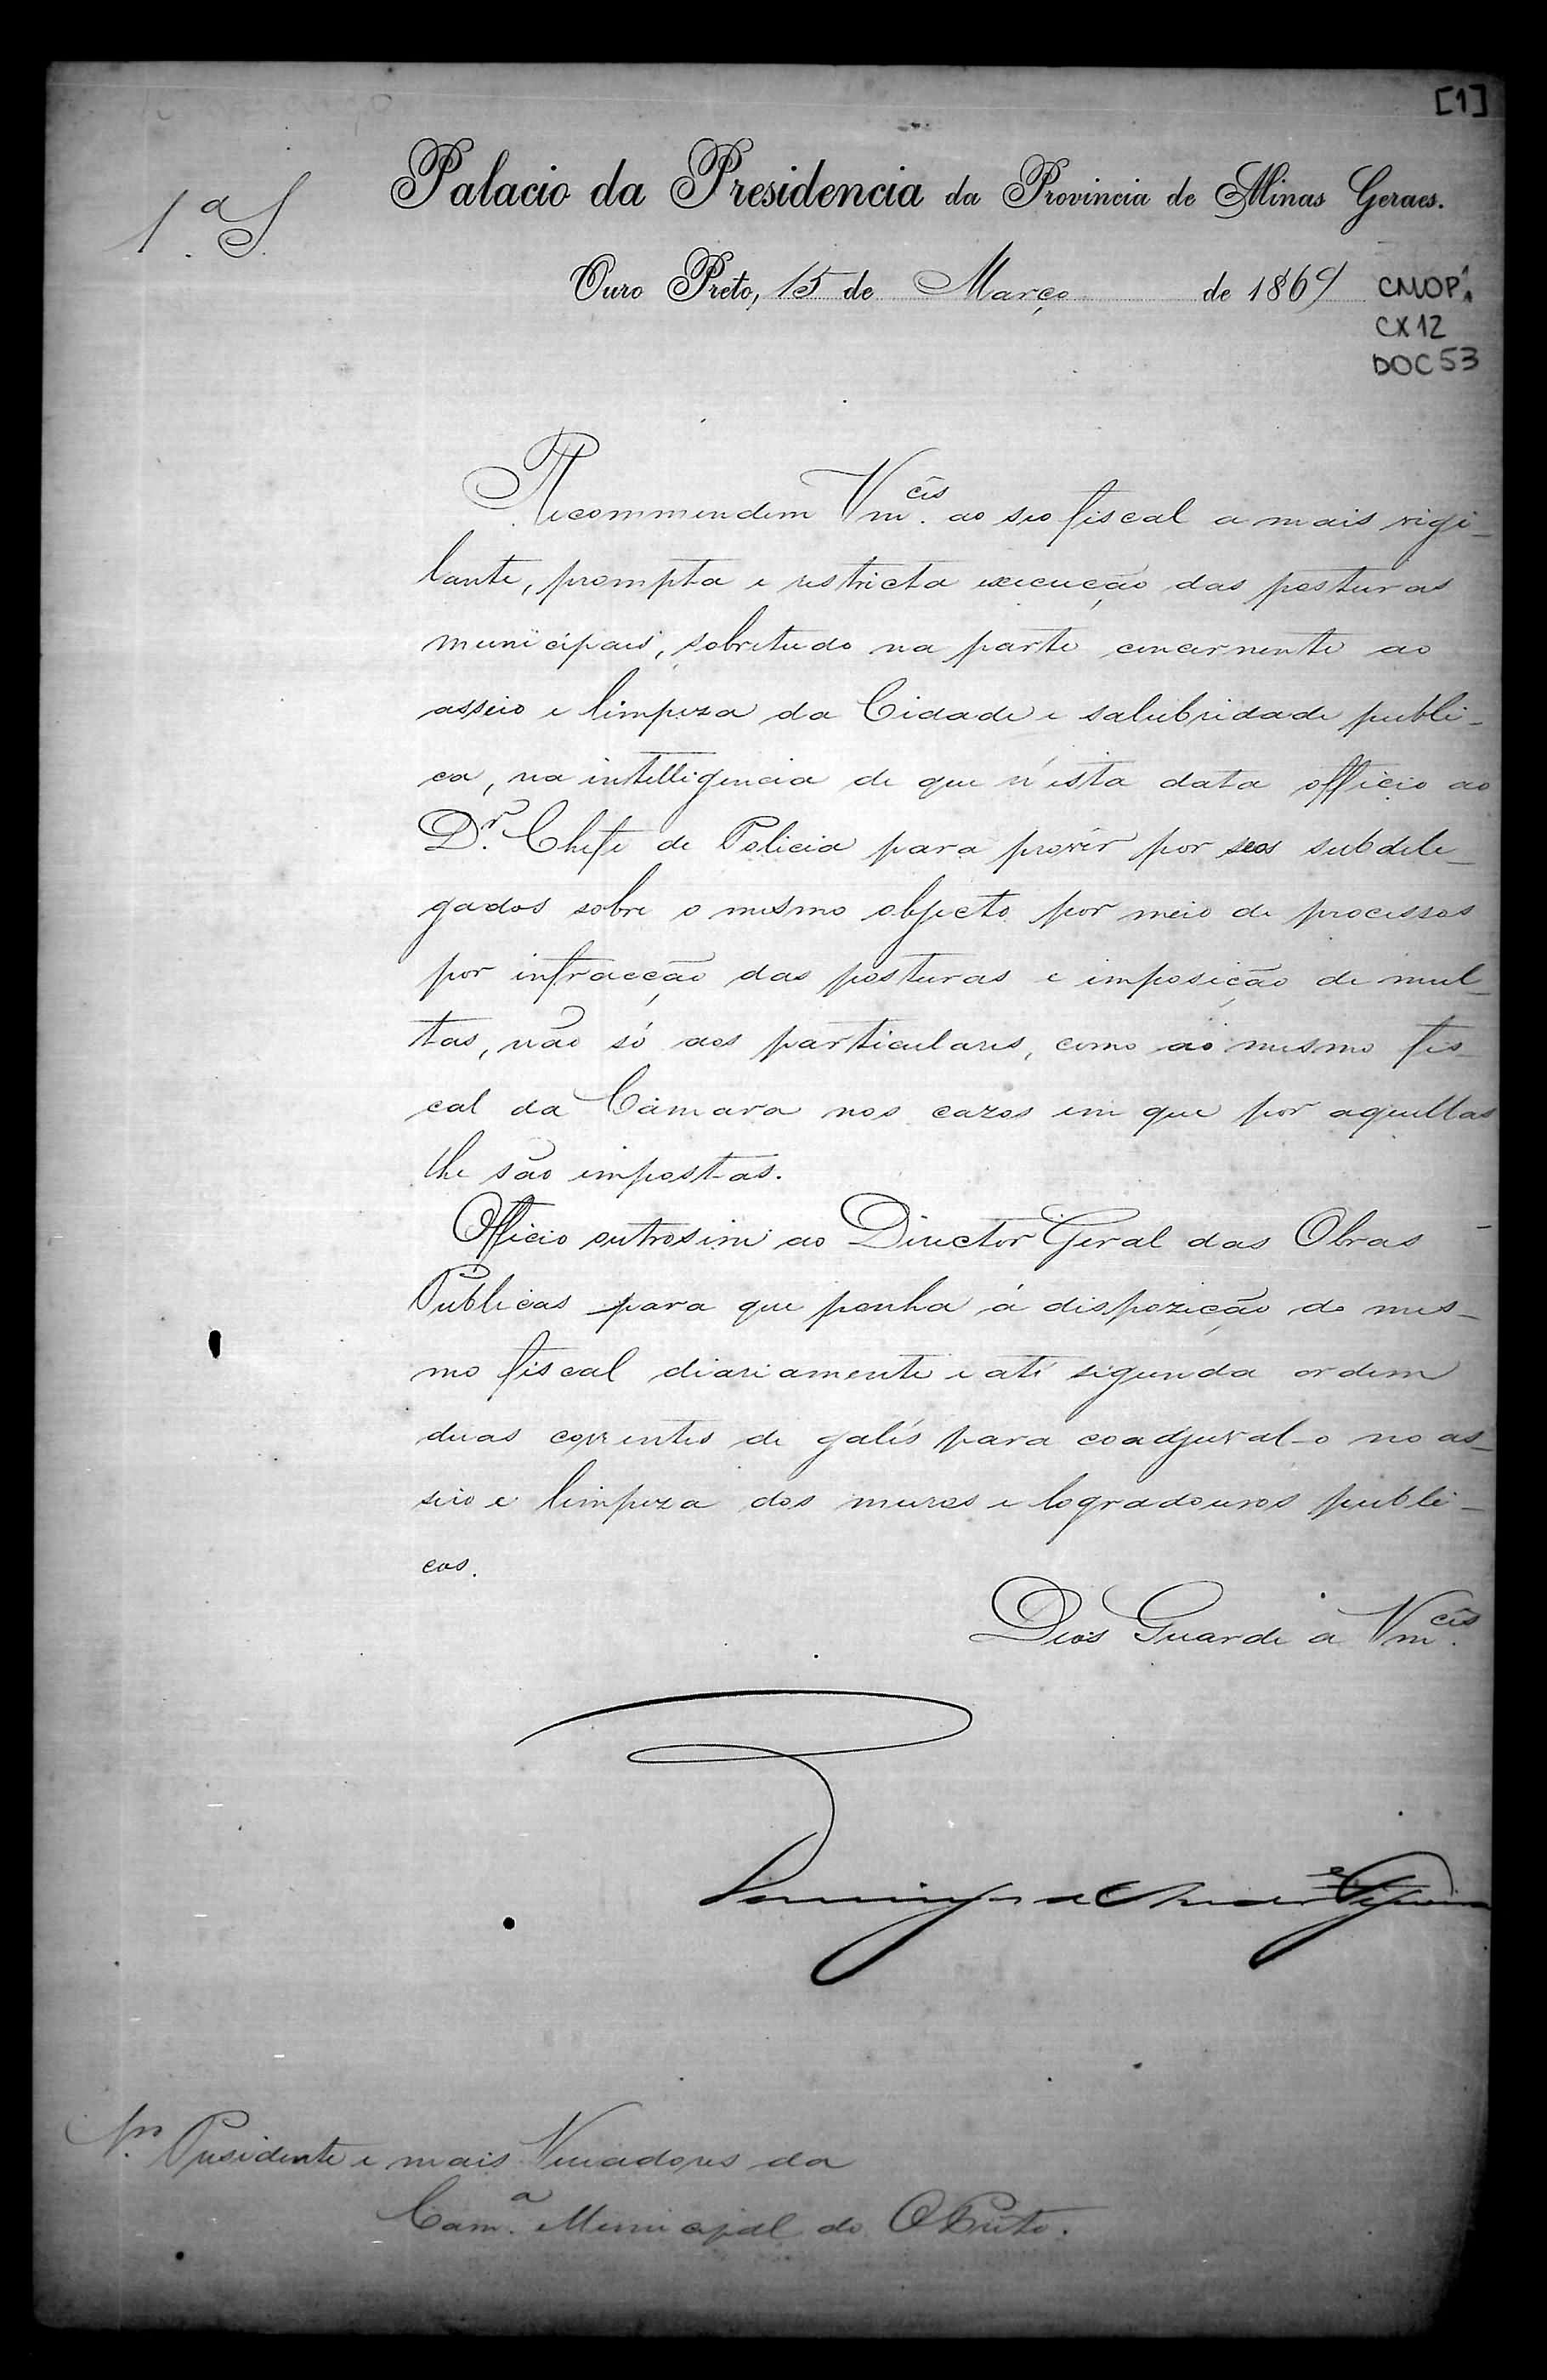 [1]
Palacio da Presidencia da Provincia de Minas Geraes.
1.ª S.
Ouro Preto, 15 de Março de 1869
CMOP
CX 12
DOC 53
Recommendem Vm.cês ao seo fiscal a mais vigi-
lante, prompta e restricta execução das posturas
municipais, sobretudo na parte concernente ao
asseio e limpeza da Cidade e salubridade publi-
ca, na intelligencia de que n'esta data officio ao
D.r Chefe de Policia para provêr por seos subdele-
gados sobre o mesmo objecto por meio de processos
por infracção das posturas e imposição de mul-
tas, não só aos particulares, como ao mesmo fis-
cal da Câmara nos cazos em que por aquellas
lhe são impostas.
Officio outrosim ao Director Geral das Obras
Publicas para que ponha á dispozição do mes-
mo fiscal diariamente e até segunda ordem
duas correntes de galés para coadjuval-o no as-
seio e limpeza dos muros e logradouros publi-
cos.
Deos Guarde a Vm.cês
Domingos de Andr.e Figueira
Presidente e mais Vereadores da
Cam.ª Municipal do O Preto.